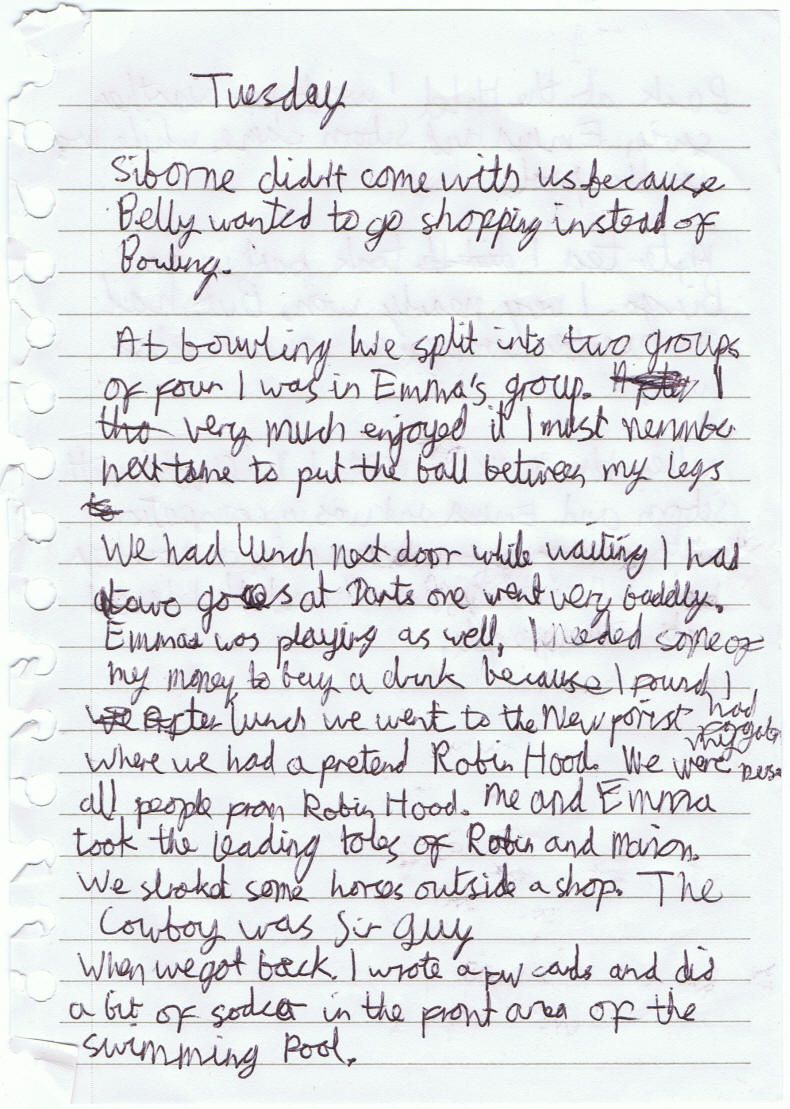 Tuesday
Siborne didn't come with us because
Belly wanted to go shopping instead of
Bowling.
At bowling we split into two groups
of four I was in Emma's group. After I
tho very much enjoyed it I must remmber
next time to put the ball between my legs
to
We had lunch next door while waiting I had
two goes at Darts one went very baddly.
Emma was playing as well, I needed some of
my money to buy a drink because I found I
lunch we went to the New forist had
where we had a pretend Robin Hood. We were
all people from Robin Hood. Me and Emma
took the leading roles of Robin and Marion.
We stroked some horses outside a shop. The
Cowboy was Sir Guy
When we got back. I wrote a few cards and did
a bit of in the front area of the
swimming Pool.